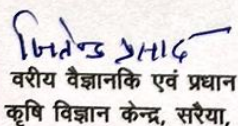 जितेन्द्र प्रसाद
वरीय वैज्ञानकि एवं प्रधान
कृषि विज्ञान केन्द्र, सरैया,